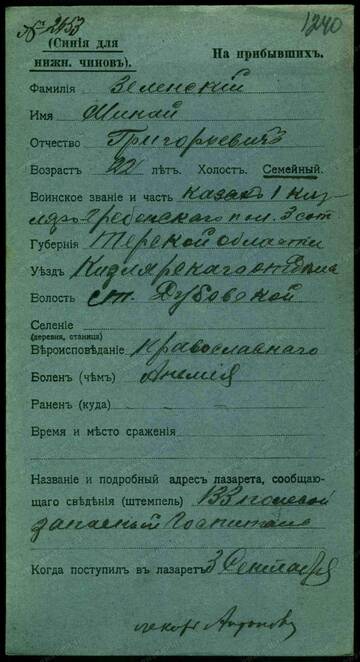 № 2453
1240
(Синія для
нижн. чиновъ).
На прибывшихъ.
Фамилія Зеленскій
Имя Минай
Отчество Григорьевичъ
Возрастъ 22 лѣтъ. Холост. Семейный.
Воинское званіе и часть казакъ 1 Киз
ляро-Гребенскаго пол. 3 сот
Губернія Терской области
Уѣздъ Кизлярскаго отдѣла
Волость ст. Дубовской
Селеніе
(деревня, станица)
Вѣроисповѣданіе Православнаго
Боленъ (чѣмъ) Анемія
Раненъ (куда)
Время и мѣсто сраженія
Названіе и подробный адресъ лазарета, сообщаю-
щаго свѣдѣнія (штемпель) 133 полевой
запасный Госпиталь
Когда поступилъ въ лазаретъ 3 Сентября